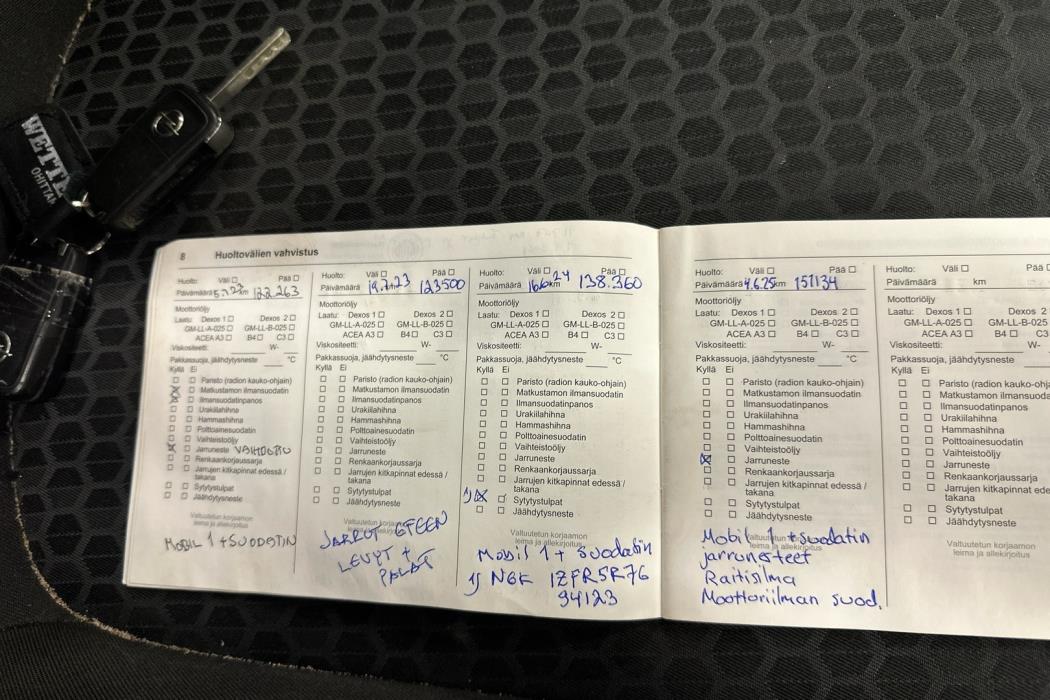 WETTE
OHITTAN
8 Huoltovälien vahvistus
Huolto: Väli ☐ Pää ☐
Päivämäärä 5.7.23 km 122.263
Moottoriöljy
Laatu: Dexos 1 ☐ Dexos 2 ☐
GM-LL-A-025 ☐ GM-LL-B-025 ☐
ACEA A3 ☐ B4 ☐ C3 ☐
Viskositeetti: W-
Pakkassuoja, jäähdytysneste °C
Kyllä Ei
☐ ☐ Paristo (radion kauko-ohjain)
☒ ☐ Matkustamon ilmansuodatin
☒ ☐ Ilmansuodatinpanos
☐ ☐ Urakiilahihna
☐ ☐ Hammashihna
☐ ☐ Polttoainesuodatin
☐ ☐ Vaihteistoöljy
☒ ☐ Jarruneste VAIHDETTU
☐ ☐ Renkaankorjaussarja
☐ ☐ Jarrujen kitkapinnat edessä /
takana
☐ ☐ Sytytystulpat
☐ ☐ Jäähdytysneste
Valtuutetun korjaamon
leima ja allekirjoitus
MOBIL 1 + SUODATIN
Huolto: Väli ☐ Pää ☐
Päivämäärä 19.7.23 km 123500
Moottoriöljy
Laatu: Dexos 1 ☐ Dexos 2 ☐
GM-LL-A-025 ☐ GM-LL-B-025 ☐
ACEA A3 ☐ B4 ☐ C3 ☐
Viskositeetti: W-
Pakkassuoja, jäähdytysneste °C
Kyllä Ei
☐ ☐ Paristo (radion kauko-ohjain)
☐ ☐ Matkustamon ilmansuodatin
☐ ☐ Ilmansuodatinpanos
☐ ☐ Urakiilahihna
☐ ☐ Hammashihna
☐ ☐ Polttoainesuodatin
☐ ☐ Vaihteistoöljy
☐ ☐ Jarruneste
☐ ☐ Renkaankorjaussarja
☐ ☐ Jarrujen kitkapinnat edessä /
takana
☐ ☐ Sytytystulpat
☐ ☐ Jäähdytysneste
Valtuutetun korjaamon
leima ja allekirjoitus
JARRUT ETEEN
LEVYT +
PALAT
Huolto: Väli ☐ Pää ☐
Päivämäärä 16.6.24 km 138.360
Moottoriöljy
Laatu: Dexos 1 ☐ Dexos 2 ☐
GM-LL-A-025 ☐ GM-LL-B-025 ☐
ACEA A3 ☐ B4 ☐ C3 ☐
Viskositeetti: W-
Pakkassuoja, jäähdytysneste °C
Kyllä Ei
☐ ☐ Paristo (radion kauko-ohjain)
☐ ☐ Matkustamon ilmansuodatin
☐ ☐ Ilmansuodatinpanos
☐ ☐ Urakiilahihna
☐ ☐ Hammashihna
☐ ☐ Polttoainesuodatin
☐ ☐ Vaihteistoöljy
☐ ☐ Jarruneste
☐ ☐ Renkaankorjaussarja
☐ ☐ Jarrujen kitkapinnat edessä /
takana
1) ☒ ☐ Sytytystulpat
☐ ☐ Jäähdytysneste
Valtuutetun korjaamon
leima ja allekirjoitus
Mobil 1 + suodatin
1) NGK IZFR5R76
94123
Huolto: Väli ☐ Pää ☐
Päivämäärä 4.6.25 km 151134
Moottoriöljy
Laatu: Dexos 1 ☐ Dexos 2 ☐
GM-LL-A-025 ☐ GM-LL-B-025 ☐
ACEA A3 ☐ B4 ☐ C3 ☐
Viskositeetti: W-
Pakkassuoja, jäähdytysneste °C
Kyllä Ei
☐ ☐ Paristo (radion kauko-ohjain)
☐ ☐ Matkustamon ilmansuodatin
☐ ☐ Ilmansuodatinpanos
☐ ☐ Urakiilahihna
☐ ☐ Hammashihna
☐ ☐ Polttoainesuodatin
☐ ☐ Vaihteistoöljy
☒ ☐ Jarruneste
☐ ☐ Renkaankorjaussarja
☐ ☐ Jarrujen kitkapinnat edessä /
takana
☐ ☐ Sytytystulpat
☐ ☐ Jäähdytysneste
Valtuutetun korjaamon
leima ja allekirjoitus
Mobil 1 + suodatin
jarrunesteet
Raitisilma
Moottoriilman suod.
Huolto: Väli ☐ Pää
Päivämäärä km
Moottoriöljy
Laatu: Dexos 1 ☐ Dexos 2
GM-LL-A-025 ☐ GM-LL-B-025
ACEA A3 ☐ B4 ☐ C3
Viskositeetti: W-
Pakkassuoja, jäähdytysneste
Kyllä Ei
☐ ☐ Paristo (radion kauko-ohja
☐ ☐ Matkustamon ilmansuoda
☐ ☐ Ilmansuodatinpanos
☐ ☐ Urakiilahihna
☐ ☐ Hammashihna
☐ ☐ Polttoainesuodatin
☐ ☐ Vaihteistoöljy
☐ ☐ Jarruneste
☐ ☐ Renkaankorjaussarja
☐ ☐ Jarrujen kitkapinnat edes
takana
☐ ☐ Sytytystulpat
☐ ☐ Jäähdytysneste
Valtuutetun korjaamon
leima ja allekirjoitus